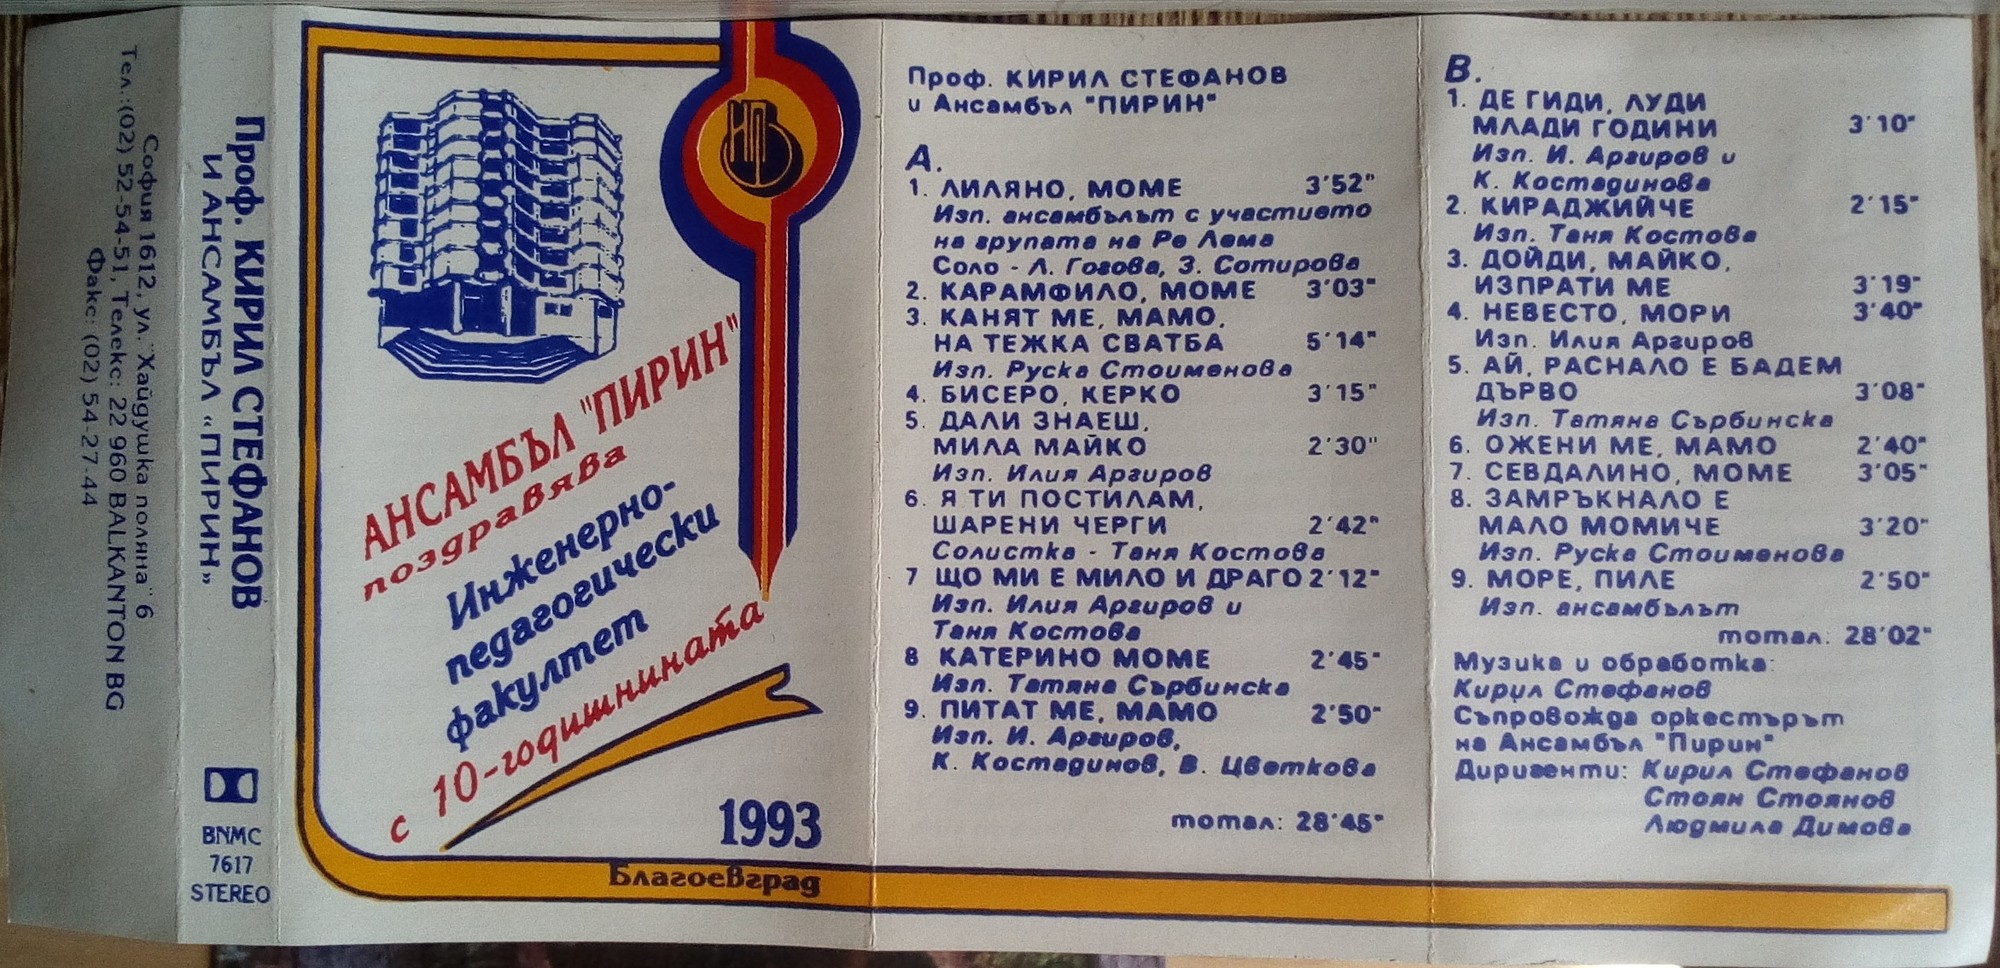 София 1612, ул."Хайдушка поляна" 6
Тел.:(02) 52-54-51, Телекс: 22 960 BALKANTON BG
Факс: (02) 54-27-44
Проф. КИРИЛ СТЕФАНОВ
И АНСАМБЪЛ «ПИРИН»
BNMC
7617
STEREO
АНСАМБЪЛ "ПИРИН"
поздравява
Инженерно-
педагогически
факултет
с 10-годишнината
1993
Благоевград
Проф. КИРИЛ СТЕФАНОВ
и Ансамбъл "ПИРИН"
А.
1. ЛИЛЯНО, МОМЕ 3'52"
Изп. ансамбълът с участието
на групата на Ре Лема
Соло - Л. Гогова, З. Сотирова
2. КАРАМФИЛО, МОМЕ 3'03"
3. КАНЯТ МЕ, МАМО,
НА ТЕЖКА СВАТБА 5'14"
Изп. Руска Стоименова
4. БИСЕРО, КЕРКО 3'15"
5. ДАЛИ ЗНАЕШ,
МИЛА МАЙКО 2'30"
Изп. Илия Аргиров
6. Я ТИ ПОСТИЛАМ,
ШАРЕНИ ЧЕРГИ 2'42"
Солистка - Таня Костова
7 ЩО МИ Е МИЛО И ДРАГО 2'12"
Изп. Илия Аргиров и
Таня Костова
8 КАТЕРИНО МОМЕ 2'45"
Изп. Татяна Сърбинска
9. ПИТАТ МЕ, МАМО 2'50"
Изп. И. Аргиров,
К. Костадинов, В. Цветкова
тотал: 28'45"
В.
1. ДЕ ГИДИ, ЛУДИ
МЛАДИ ГОДИНИ 3'10"
Изп. И. Аргиров и
К. Костадинова
2. КИРАДЖИЙЧЕ 2'15"
Изп. Таня Костова
3. ДОЙДИ, МАЙКО,
ИЗПРАТИ МЕ 3'19"
4. НЕВЕСТО, МОРИ 3'40"
Изп. Илия Аргиров
5. АЙ, РАСНАЛО Е БАДЕМ
ДЪРВО 3'08"
Изп. Татяна Сърбинска
6. ОЖЕНИ МЕ, МАМО 2'40"
7. СЕВДАЛИНО, МОМЕ 3'05"
8. ЗАМРЪКНАЛО Е
МАЛО МОМИЧЕ 3'20"
Изп. Руска Стоименова
9. МОРЕ, ПИЛЕ 2'50"
Изп. ансамбълът
тотал: 28'02"
Музика и обработка:
Кирил Стефанов
Съпровожда оркестърът
на Ансамбъл "Пирин"
Диригенти: Кирил Стефанов
Стоян Стоянов
Людмила Димова